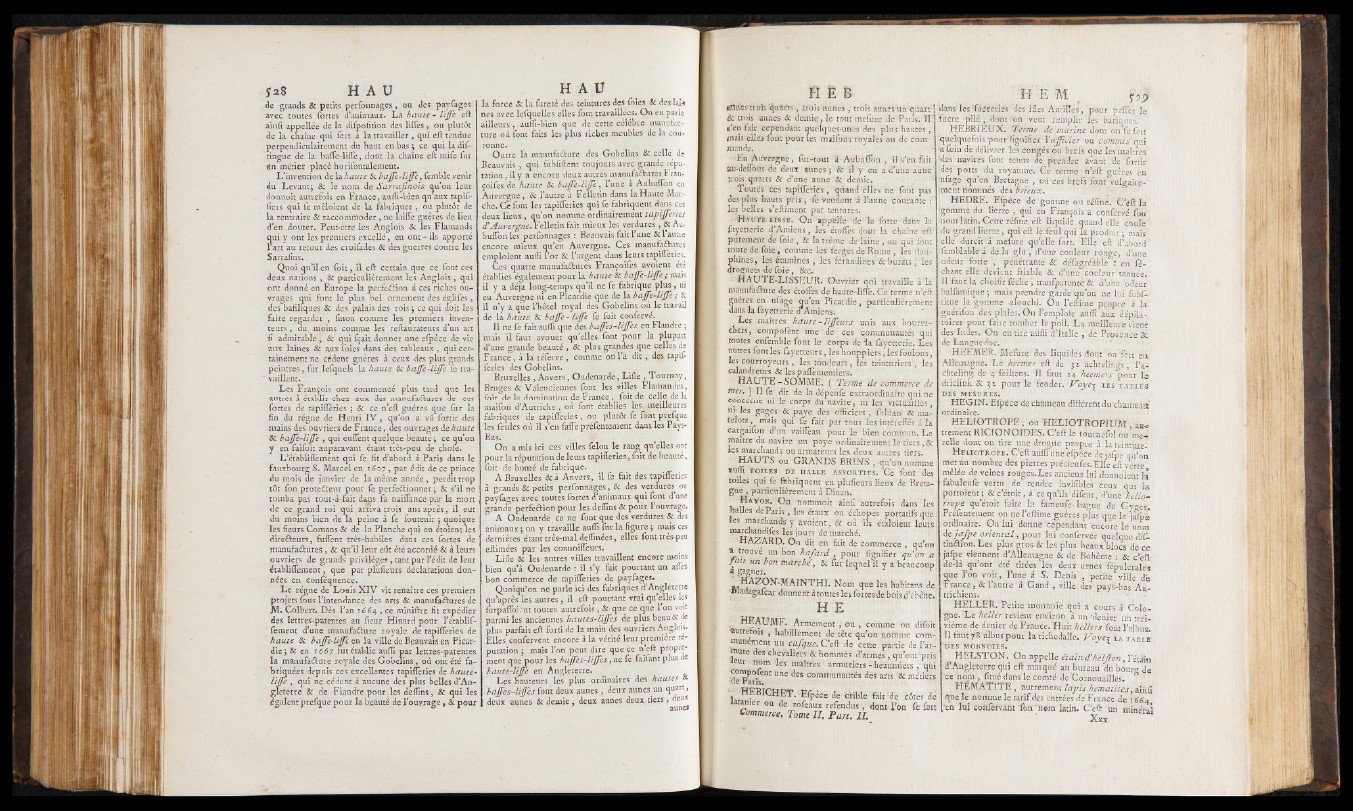 528 HAU
de grands & petits personnages, ou des paysages
avec toutes sortes d'animaux. La haute-lisse est
ainsi appellée de la disposition des lisses, ou plutôt
de la chaîne qui sert à la travailler, qui est tendue
perpendiculairement du haut en bas; ce qui la dis-
tingue de la basse-lisse, dont la chaîne est mise sur
un métier placé horisontalement.
L'invention de la haute & basse-lisse, semble venir
du Levant; & le nom de Sarrasinois qu'on leur
donnoit autrefois en France, aussi-bien qu'aux tapis-
siers qui se mêloient de la fabriquer, ou plutôt de
la rentraire & raccommoder, ne laisse guéres de lieu
d'en douter. Peut-être les Anglois, & les Flamands
qui y ont les premiers excellé, en ont-ils apporté
l'art au retour des croisades & des guerres contre les
Sarrasins.
Quoi qu'il en soit, il est certain que ce sont ces
deux nations, & particuliérement les Anglois, qui
ont donné en Europe la perfection à ces riches ou-
vrages qui font le plus bel ornement des églises,
des basiliques & des palais des rois; ce qui doit les
faire regarder, sinon comme les premiers inven-
teurs, du moins comme les restaurateurs d'un art
si admirable, & qui sçait donner une espèce de vie
aux laines & aux soies dans des tableaux, qui cer-
tainement ne cédent guéres à ceux des plus grands
peintres, sur lesquels la haute & basse-lisse se tra-
vaillent.
Les François ont commencé plus tard que les
autres à établir chez eux des manufactures de ces
sortes de tapisseries; & ce n'est guéres que sur la
fin du régne de Henri IV, qu'on a vû sortir des
mains des ouvriers de France, des ouvrages de haute
& basse-lisse, qui eussent quelque beauté, ce qu'on
y en faisoit auparavant étant très-peu de chose.
L'établissement qui se fit d'abord à Paris dans le
fauxbourg S. Marcel en 1607, par édit de ce prince
du mois de janvier de la même année, perdit trop
tôt son protecteur pour se perfectionner; & s'il ne
tomba pas tout-à-fait dans sa naissance par la mort
de ce grand roi qui arriva trois ans après, il eut
du moins bien de la peine à se soutenir; quoique
les sieurs Comans & de la Planche qui en étoient les
directeurs, fussent très-habiles dans ces sortes de
manufactures, & qu'il leur eût été accordé & à leurs
ouvriers de grands priviléges, tant par l'édit de leur
établissement, que par plusieurs déclarations don-
nées en conséquence.
Le régne de Louis XIV vit renaître ces premiers
projets sous l'intendance des arts & manufactures de
M. Colbert. Dès l'an 1664, ce ministre fit expédier
des lettres-patentes au sieur Hinard pour l'établis-
sement d'une manufacture royale de tapisseries de
haute & basse-lisse en la ville de Beauvais en Picar-
die; & en 1667 fut établie aussi par lettres-patentes
la manufacture royale des Gobelins, où ont été fa-
briquées depuis ces excellentes tapisseries de haute-
lisse, qui ne cédent à aucune des plus belles d'An-
gleterre & de Flandre pour les desseins, & qui les
égalent presque pour la beauté de l'ouvrage, & pour
HAU
la force & la sureté des teintures des soies & des lai-
nes avec lesquelles elles sont travaillées. On en parle
ailleurs, aussi-bien que de cette célébre manufac-
ture où sont faits les plus riches meubles de la cou-
ronne.
Outre la manufacture des Gobelins & celle de
Beauvais, qui subsistent toujours avec grande répu-
tation, il y a encore deux autres manufactures Fran-
çoises de haute & basse-lisse, l'une à Aubusson en
Auvergne, & l'autre à Felletin dans la Haute Mar-
che. Ce sont les tapisseries qui se fabriquent dans ces
deux lieux, qu'on nomme ordinairement tapisseries
d'Auvergne. Felletin fait mieux les verdures, & Au-
busson les personnages: Beauvais fait l'une & l'autre
encore mieux qu'en Auvergne. Ces manufactures
emploient aussi l'or & l'argent dans leurs tapisseries.
Ces quatre manufactures Françoises avoient été
établies également pour la haute & basse-lisse; mais
il y a déja long-temps qu'il ne se fabrique plus, ni
en Auvergne ni en Picardie que de la basse-lisse; &
il n'y a que l'hôtel royal des Gobelins où le travail
de la haute & basse-lisse se soit conservé.
Il ne se fait aussi que des basses-lisses en Flandre;
mais il faut avouer qu'elles sont pour la plupart
d'une grande beauté, & plus grandes que celles de
France, à la réserve, comme on l'a dit, des tapis-
series des Gobelins.
Bruxelles, Anvers, Oudenarde, Lisle, Tournay,
Bruges & Valenciennes sont les villes Flamandes,
soit de la domination de France, soit de celle de la
maison d'Autriche, où sont établies les meilleures
fabriques de tapisseries, ou plutôt se sont presque
les seules où il s'en fasse présentement dans les Pays-
Bas.
On a mis ici ces villes selon le rang qu'elles ont
pour la réputation de leurs tapisseries, soit de beauté,
soit de bonté de fabrique.
A Bruxelles & à Anvers, il se fait des tapisseries
à grands & petits personnages, & des verdures ou
paysages avec toutes sortes d'animaux qui sont d'une
grande perfection pour les desseins & pour l'ouvrage.
A Oudenarde ce ne sont que des verdures & des
animaux; on y travaille aussi sur la figure; mais ces
dernières étant très-mal dessinées, elles sont très-peu
estimées par les connoisseurs.
Lisle & les autres villes travaillent encore moins
bien qu'à Oudenarde: il s'y fait pourtant un assez
bon commerce de tapisseries de paysages.
Quoiqu'on ne parle ici des fabriques d'Angleterre
qu'après les autres, il est pourtant vrai qu'elles les
surpassoient toutes autrefois, & que ce que l'on voit
parmi les anciennes hautes-lisses de plus beau & de
plus parfait est sorti de la main des ouvriers Anglois.
Elles conservent encore à la vérité leur première ré-
putation; mais l'on peut dire que ce n'est propre-
ment que pour les basses-lisses, ne se faisant plus de
haute-lisse en Angleterre.
Les hauteurs les plus ordinaires des hautes &
basses-lisses sont deux aunes, deux aunes un quart,
deux aunes & demie, deux aunes deux tiers, deux
aunes
HEB
aunes trois quarts, trois aunes, trois aunes un quart
& trois aunes & demie, le tout mesure de Paris. Il
s'en fait cependant quelques-unes des plus hautes,
mais elles sont pour les maisons royales ou de com-
mande.
En Auvergne, sur-tout à Aubusson, il s'en fait
au-dessous de deux aunes; & il y en a d'une aune
trois quarts & d'une aune & demie.
Toutes ces tapisseries, quand elles ne sont pas
des plus hauts prix, se vendent à l'aune courante:
les belles s'estiment par tentures.
HAUTE-LISSE. On appelle de la sorte dans la
sayetterie d'Amiens, les étoffes dont la chaîne est
purement de soie, & la trême de laine, ou qui sont
toute de soie, comme les serges de Rome, les dau-
phines, les étamines, les férandines & burats, les
drognets de soie, &c.
HAUTE-LISSEUR. Ouvrier qui travaille à la
manufacture des étoffes de haute-lisse. Ce terme n'est
guéres en usage qu'en Picardie, particuliérement
dans la sayetterie d'Amiens.
Les maîtres haute-lisseurs unis aux bourra-
chers, composent une de ces communautés qui
toutes ensemble font le corps de la sayetterie. Les
autres sont les sayetteurs, les houppiers, les foulons,
les courroyeurs, les tondeurs, les teinturiers, les
calandreurs & les passementiers.
HAUTE-SOMME. (Terme de commerce de
mer.) Il se dit de la dépense extraordinaire qui ne
concerne ni le corps du navire, ni les victuailles,
ni les gages & paye des officiers, soldats & ma-
telots, mais qui se fait par tous les intéressés à la
cargaison d'un vaisseau pour le bien commun. Le
maître du navire en paye ordinairement le tiers, &
les marchands ou armateurs les deux autres tiers.
HAUTS ou GRANDS BRINS, qu'on nomme
aussi TOILES DE HALLE ASSORTIES. Ce sont des
toiles qui se fabriquent en plusieurs lieux de Breta-
gne, particuliérement à Dinan.
HAYON. On nommoit ainsi autrefois dans les
halles de Paris, les étaux ou échopes portatifs que
les marchands y avoient, & où ils étaloient leurs
marchandises les jours de marché.
HAZARD. On dit en fait de commerce, qu'on
a trouvé un bon hasard, pour signifier qu'on a
fait un bon marché, & sur lequel il y a beaucoup
à gagner.
HAZON-MAINTHI. Nom que les habitans de
Madagascar donnent à toutes les sortes de bois d'ébène.
HE
HEAUME. Armement, ou, comme on disoit
autrefois, habillement de tête qu'on nomme com-
munément un casque. C'est de cette partie de l'ar-
mure des chevaliers & hommes d'armes, qu'ont pris
leur nom les maîtres armuriers-heaumiers, qui
composent une des communautés des arts & métiers
de Paris.
HEBICHET. Espèce de crible fait de côtes de
latanier ou de roseaux refendus, dont l'on se sert
Commerce. Tome II. Part. II.
HEM 529
dans les sucreries des Isles Antilles, pour passer le
sucre pilé, dont on veut remplir les bariques.
HEBRIEUX. Terme de marine dont on se sert
quelquefois pour signifier l'officier ou commis qui
a soin de délivrer les congés ou brefs que les maîtres
des navires sont tenus de prendre avant de sortir
des ports du royaume. Ce terme n'est guéres en
usage qu'en Bretagne, où ces brefs sont vulgaire-
ment nommés des brieux.
HEDRE. Espèce de gomme ou résine. C'est la
gomme du lierre, qui en François a conservé son
nom latin. Cette résine est liquide quand elle coule
du grand lierre, qui est le seul qui la produit; mais
elle durcit à mesure qu'elle sort. Elle est d'abord
semblable à de la glu, d'une couleur rouge, d'une
odeur forte, pénétrante & désagréable: en sé-
chant elle devient friable & d'une couleur tannée.
Il faut la choisir séche, transparente & d'une odeur
balsamique; mais prendre garde qu'on ne lui subs-
titue la gomme alouchi. On l'estime propre à la
guérison des plaies. On l'emploie aussi aux dépila-
toires pour faire tomber le poil. La meilleure vient
des Indes. On en tire aussi d'Italie, de Provence &
de Languedoc.
HEEMER. Mesure des liquides dont on sert en
Allemagne. Le heemer est de 32 achtelings, l'a-
chteling de 4 seiltens. Il faut 24 heemers pour le
driclink & 32 pour le feoder. Voyez LES TABLES
DES MESURES.
HEGIN. Espèce de chameau différent du chameau
ordinaire.
HELIOTROPE, ou HELIOTROPIUM, au-
trement RICIONOIDES. C'est le tournesol ou mo-
relle dont on tire une drogue propre à la teinture.
HELIOTROPE. C'est aussi une espèce de jaspe qu'on
met au nombre des pierres précieuses. Elle est verte,
mêlée de veines rouges. Les anciens lui donnoient la
fabuleuse vertu de rendre invisibles ceux qui la
portoient; & c'étoit, à ce qu'ils disent, d'une helio-
trope qu'étoit faite la fameuse bague de Gyges.
Présentement on ne l'estime guéres plus que le jaspe
ordinaire. On lui donne cependant encore le nom
de jaspe oriental, pour lui conserver quelque dis-
tinction. Les plus gros & les plus beaux blocs de ce
jaspe viennent d'Allemagne & de Bohême: & c'est
de-là qu'ont été tirées les deux urnes sépulcrales
que l'on voit, l'une à S. Denis, petite ville de
France, & l'autre à Gand, ville des pays-bas Au-
trichiens.
HELLER. Petite monnoie qui a cours à Colo-
gne. Le heller revient environ à un denier un troi-
sième de denier de France. Huit hellers font l'albus.
Il faut 78 albus pour la richedalle. Voyez LA TABLE
DES MONNOIES.
HELSTON. On appelle étain d'helston, l'étain
d'Angleterre qui est marqué au bureau du bourg de
ce nom, situé dans le comté de Cornouailles.
HÉMATITE, autrement lapis hematites, ainsi
que le nomme le tarif des entrées de France de 1664,
en lui conservant son nom latin. C'est un minéral
Xxx